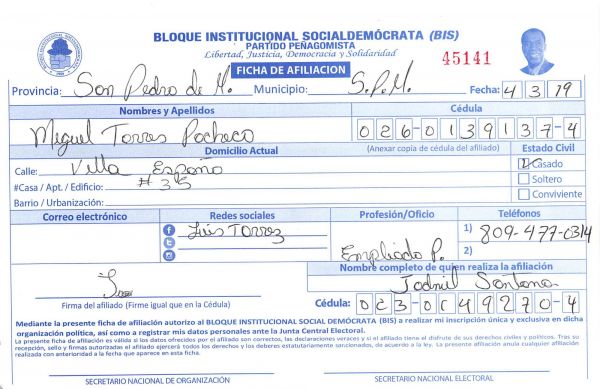 BLOQUE INSTITUCIONAL SOCIALDEMÓCRATA (BIS)
PARTIDO PEÑAGOMISTA
Libertad, Justicia, Democracia y Solidaridad
45141
FICHA DE AFILIACION
Provincia: San Pedro de M. Municipio: S.P.M. Fecha: 4 3 19
Nombres y Apellidos
Cédula
Miguel Torres Pacheco
026-0139137-4
Domicilio Actual
(Anexar copia de cédula del afiliado)
Estado Civil
Calle: Villa España
Casado
#Casa / Apt. / Edificio: # 35
Soltero
Barrio / Urbanización:
Conviviente
Correo electrónico
Redes sociales
Profesión/Oficio
Teléfonos
Luis Torres
1) 809-477-0314
Empliado P.
2)
Nombre completo de quien realiza la afiliación
Santana
Firma del afiliado (Firme igual que en la Cédula)
Cédula: 023-0149270-4
Mediante la presente ficha de afiliación autorizo al BLOQUE INSTITUCIONAL SOCIAL DEMÓCRATA (BIS) a realizar mi inscripción única y exclusiva en dicha
organización política, así como a registrar mis datos personales ante la Junta Central Electoral.
La presente ficha de afiliación es válida si los datos ofrecidos por el afiliado son correctos, las declaraciones veraces y si el afiliado tiene el disfrute de sus derechos civiles y políticos. Tras su
recepción, sello y firmas autorizadas el afiliado ejercerá todos los derechos y los deberes estatutariamente sancionados, de acuerdo a la ley. La presente afiliación anula cualquier afiliación
realizada con anterioridad a la fecha que aparece en esta ficha.
SECRETARIO NACIONAL DE ORGANIZACIÓN
SECRETARIO NACIONAL ELECTORAL